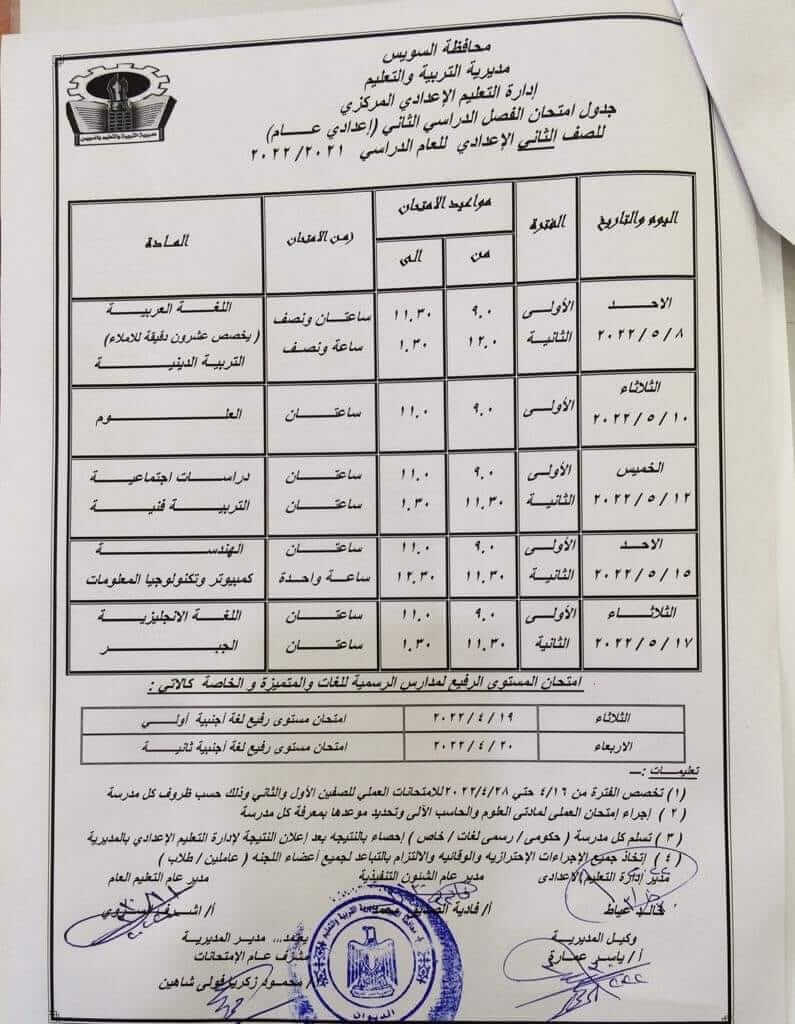 محافظة السويس
مديرية التربية والتعليم
إدارة التعليم الإعدادي المركزي
جدول امتحان الفصل الدراسي الثاني (إعدادي عـــام)
للصف الثاني الإعدادي للعام الدراسي ٢٠٢١/ ٢٠٢٢
اليوم والتاريخ الفترة مواعيد الامتحان زمن الامتحان المــادة
من الى
الاحــد ٢٠٢٢/٥/٨ الأولى ٩.٠ ١١.٣٠ ساعتــان ونصف اللغــة العربيــة
(يخصص عشرون دقيقة للاملاء)
الثانية ١٢.٠ ١.٣٠ ساعة ونصف التربية الدينيــة
الثلاثاء ٢٠٢٢/٥/١٠ الأولى ٩.٠ ١١.٠ ساعتــان العلــوم
الخميس ٢٠٢٢/٥/١٢ الأولى ٩.٠ ١١.٠ ساعتــان دراســات اجتماعيــة
الثانية ١١.٣٠ ١.٣٠ ساعتــان التربيــة فنيــة
الاحــد ٢٠٢٢/٥/١٥ الأولى ٩.٠ ١١.٠ ساعتــان الهندســة
الثانية ١١.٣٠ ١٢.٣٠ ساعــة واحـدة كمبيوتر وتكنولوجيا المعلومات
الثلاثــاء ٢٠٢٢/٥/١٧ الأولى ٩.٠ ١١.٠ ساعتــان اللغــة الانجليزيــة
الثانية ١١.٣٠ ١.٣٠ ساعتــان الجبــر
امتحان المستوى الرفيع لمدارس الرسمية للغات والمتميزة و الخاصة كالاتي :
الثلاثاء ٢٠٢٢/٤/١٩ امتحان مستوى رفيع لغة أجنبية أولــي
الاربعاء ٢٠٢٢/٤/٢٠ امتحان مستوى رفيع لغة أجنبية ثانيــة
تعليمــات :ــ
(١) تخصص الفترة من ٤/١٦ حتى ٢٠٢٢/٤/٢٨ للامتحانات العملي للصفين الأول والثاني وذلك حسب ظروف كل مدرسة
(٢) إجراء إمتحان العملى لمادتى العلوم والحاسب الآلى وتحديد موعدها بمعرفة كل مدرسة
(٣) تسلم كل مدرسة ( حكومى / رسمى لغات / خاص ) إحصاء بالنتيجه بعد إعلان النتيجة لإدارة التعليم الإعدادي بالمديرية
(٤) إتخاذ جميع الإجراءات الإحترازيه والوقائيه والالتزام بالتباعد لجميع أعضاء اللجنه ( عاملين / طلاب )
مدير إدارة التعليم الإعدادى مدير عام الشئون التنفيذية مدير عام التعليم العام
خالد عياط أ/ فادية أ/ اشرف
وكيل المديرية يعتمد... مدير المديرية
أ / ياسر عمارة مشرف عـام الإمتحانات
محمود زكريا فولى شاهين
الديوان